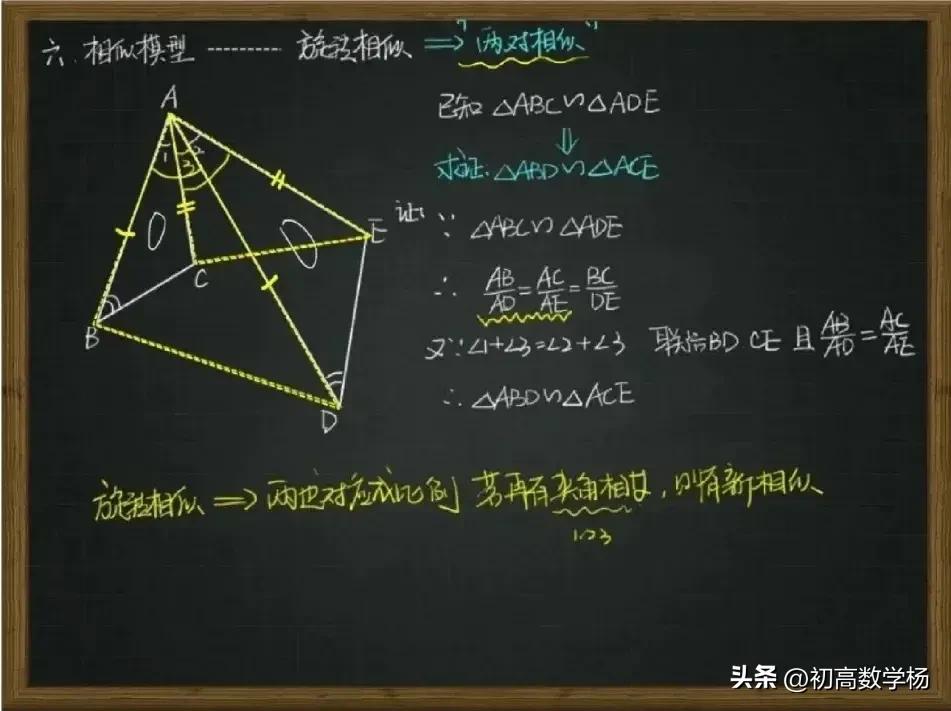 六. 相似模型 ------ 旋转相似 ⇒ "两对相似"
已知 △ABC∽△ADE
⇓
求证. △ABD∽△ACE
证: ∵ △ABC∽△ADE
∴ AB/AD = AC/AE = BC/DE
又∵ ∠1+∠3=∠2+∠3 联结BD CE 且 AB/AD = AC/AE
∴ △ABD∽△ACE
A
1
2
3
E
C
B
D
旋转相似 ⇒ 两边对应成比例 若再有夹角相等, 则有新相似
头条 @初高数学杨